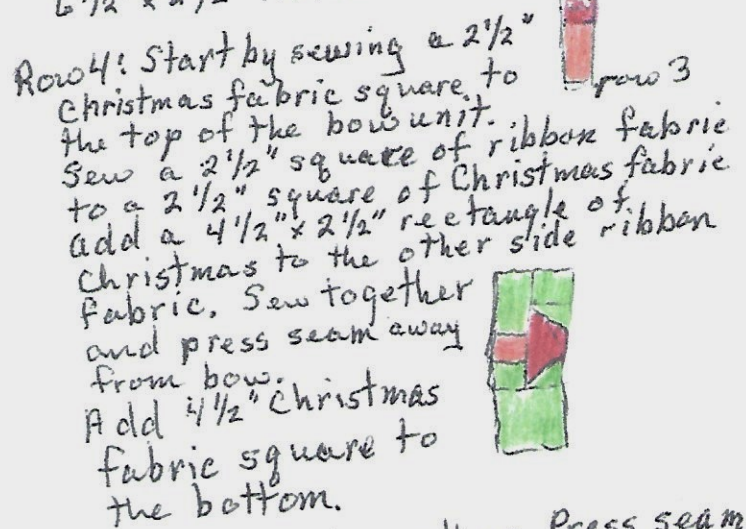 6 1/2 x 2 1/2
Row 4: Start by sewing a 2 1/2"
Christmas fabric square to
row 3
the top of the bow unit.
Sew a 2 1/2" square of ribbon fabric
to a 2 1/2" square of Christmas fabric
add a 4 1/2" x 2 1/2" rectangle of
Christmas to the other side ribbon
fabric. Sew together
and press seam away
from bow.
Add 4 1/2" Christmas
fabric square to
the bottom.
Press seam